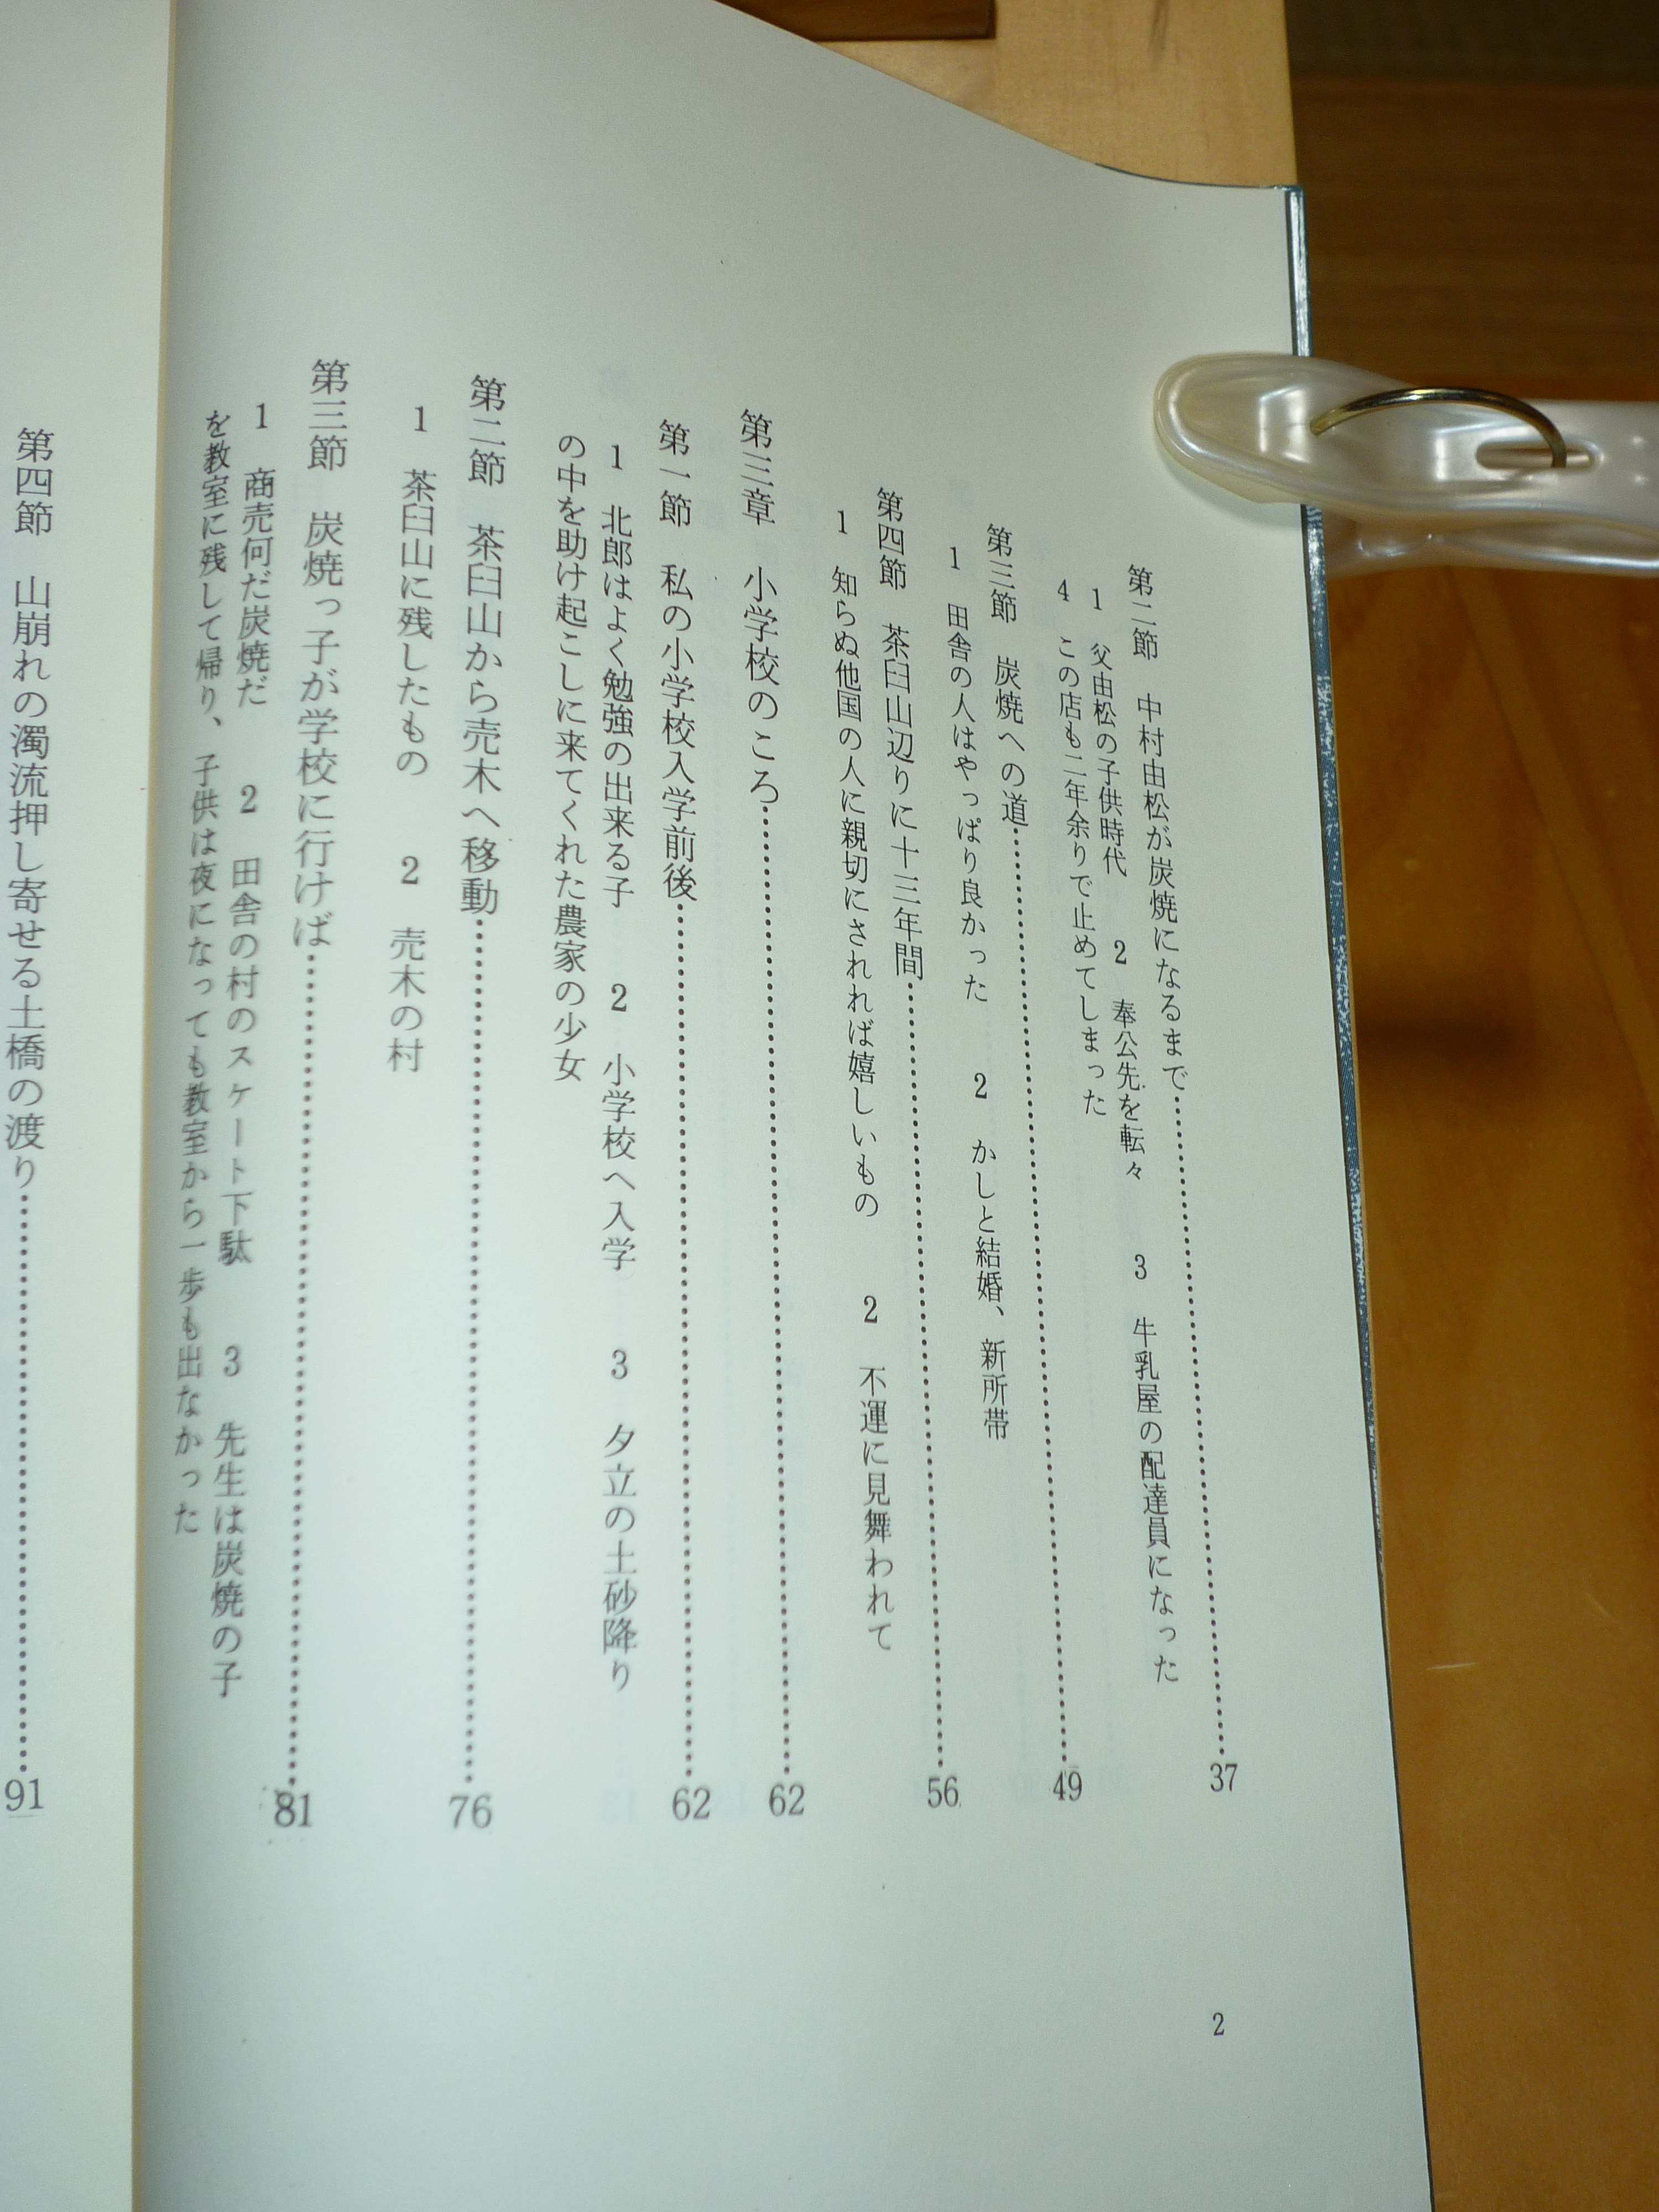 第二節　中村由松が炭焼になるまで…………37
1　父由松の子供時代　2　奉公先を転々　3　牛乳屋の配達員になった
4　この店も二年余りで止めてしまった
第三節　炭焼への道…………49
1　田舎の人はやっぱり良かった　2　かしと結婚、新所帯
第四節　茶臼山辺りに十三年間…………56
1　知らぬ他国の人に親切にされれば嬉しいもの　2　不運に見舞われて
第三章　小学校のころ…………62
第一節　私の小学校入学前後…………62
1　北郎はよく勉強の出来る子　2　小学校へ入学　3　夕立の土砂降り
の中を助け起こしに来てくれた農家の少女
第二節　茶臼山から売木へ移動…………76
1　茶臼山に残したもの　2　売木の村
第三節　炭焼っ子が学校に行けば…………81
1　商売何だ炭焼だ　2　田舎の村のスケート下駄　3　先生は炭焼の子
を教室に残して帰り、子供は夜になっても教室から一歩も出なかった
2
第四節　山崩れの濁流押し寄せる土橋の渡り…………91